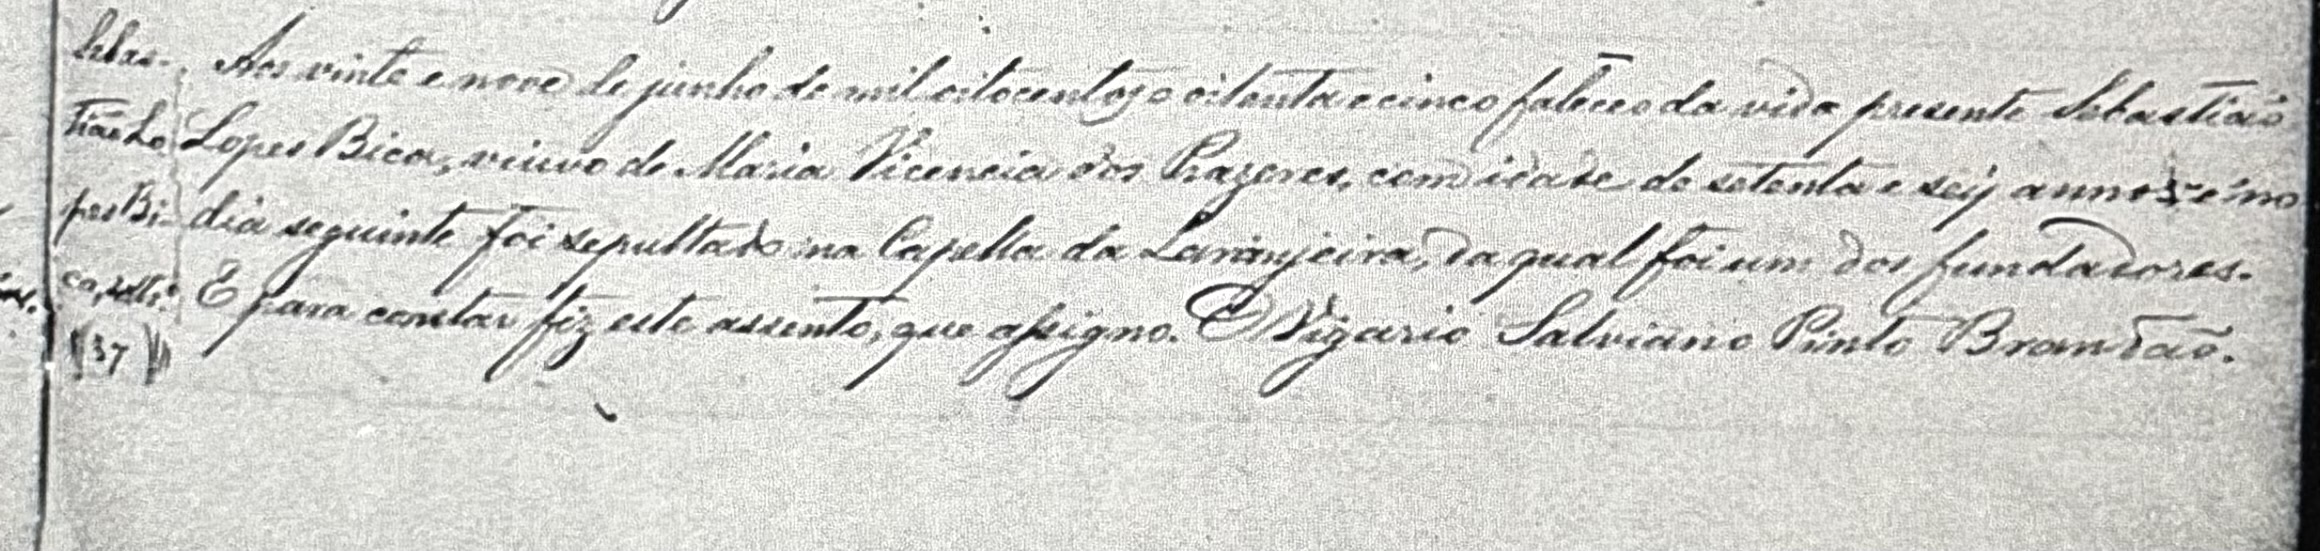 Sebas-
tião Lo
pes Bi-
ca, solt.º
(37)
Aos vinte e nove de junho de mil oitocentos e oitenta e cinco faleceo da vida presente Sebastião
Lopes Bica, viuvo de Maria Vicencia dos Prazeres, com idade de setenta e seis annos; e no
dia seguinte foi sepultado na Capella da Laranjeira, da qual foi um dos fundadores.
E para constar fiz este assento, que assigno. O Vigario Salviano Pinto Brandão.